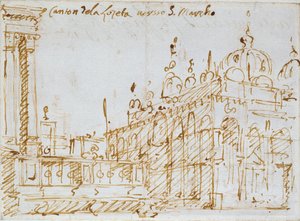 Canton dela Loreta verso S. Marcho